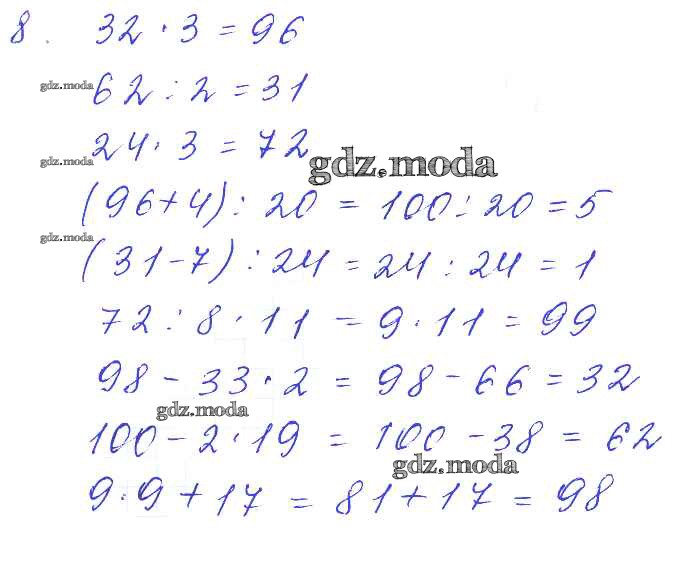 8. 32 · 3 = 96
gdz.moda
62 : 2 = 31
24 · 3 = 72
gdz.moda
gdz.moda
(96+4) : 20 = 100 : 20 = 5
gdz.moda
(31-7) : 24 = 24 : 24 = 1
72 : 8 · 11 = 9 · 11 = 99
98 - 33 · 2 = 98 - 66 = 32
gdz.moda
100 - 2 · 19 = 100 - 38 = 62
gdz.moda
9 · 9 + 17 = 81 + 17 = 98